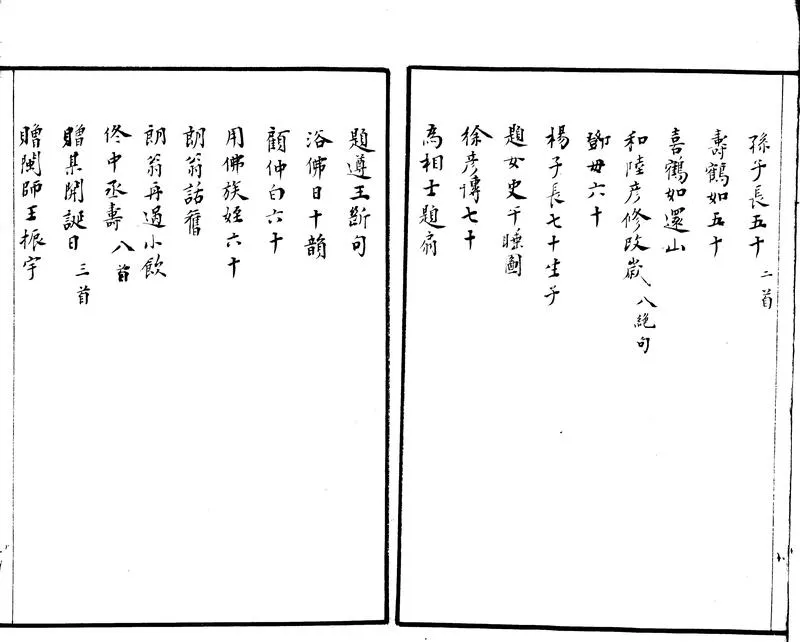 孫子長五十 二首
壽鶴如五十
喜鶴如還山
和陸彥修改歲 八絕句
鄧母六十
楊子長七十生子
題女史午睡圖
徐彥博七十
為相士題扇
題遵王斷句
浴佛日十韻
顧仲白六十
用佛族姪六十
朗翁話舊
朗翁再過小飲
佟中丞壽 八首
贈某開誕日 三首
贈閩師王振宇